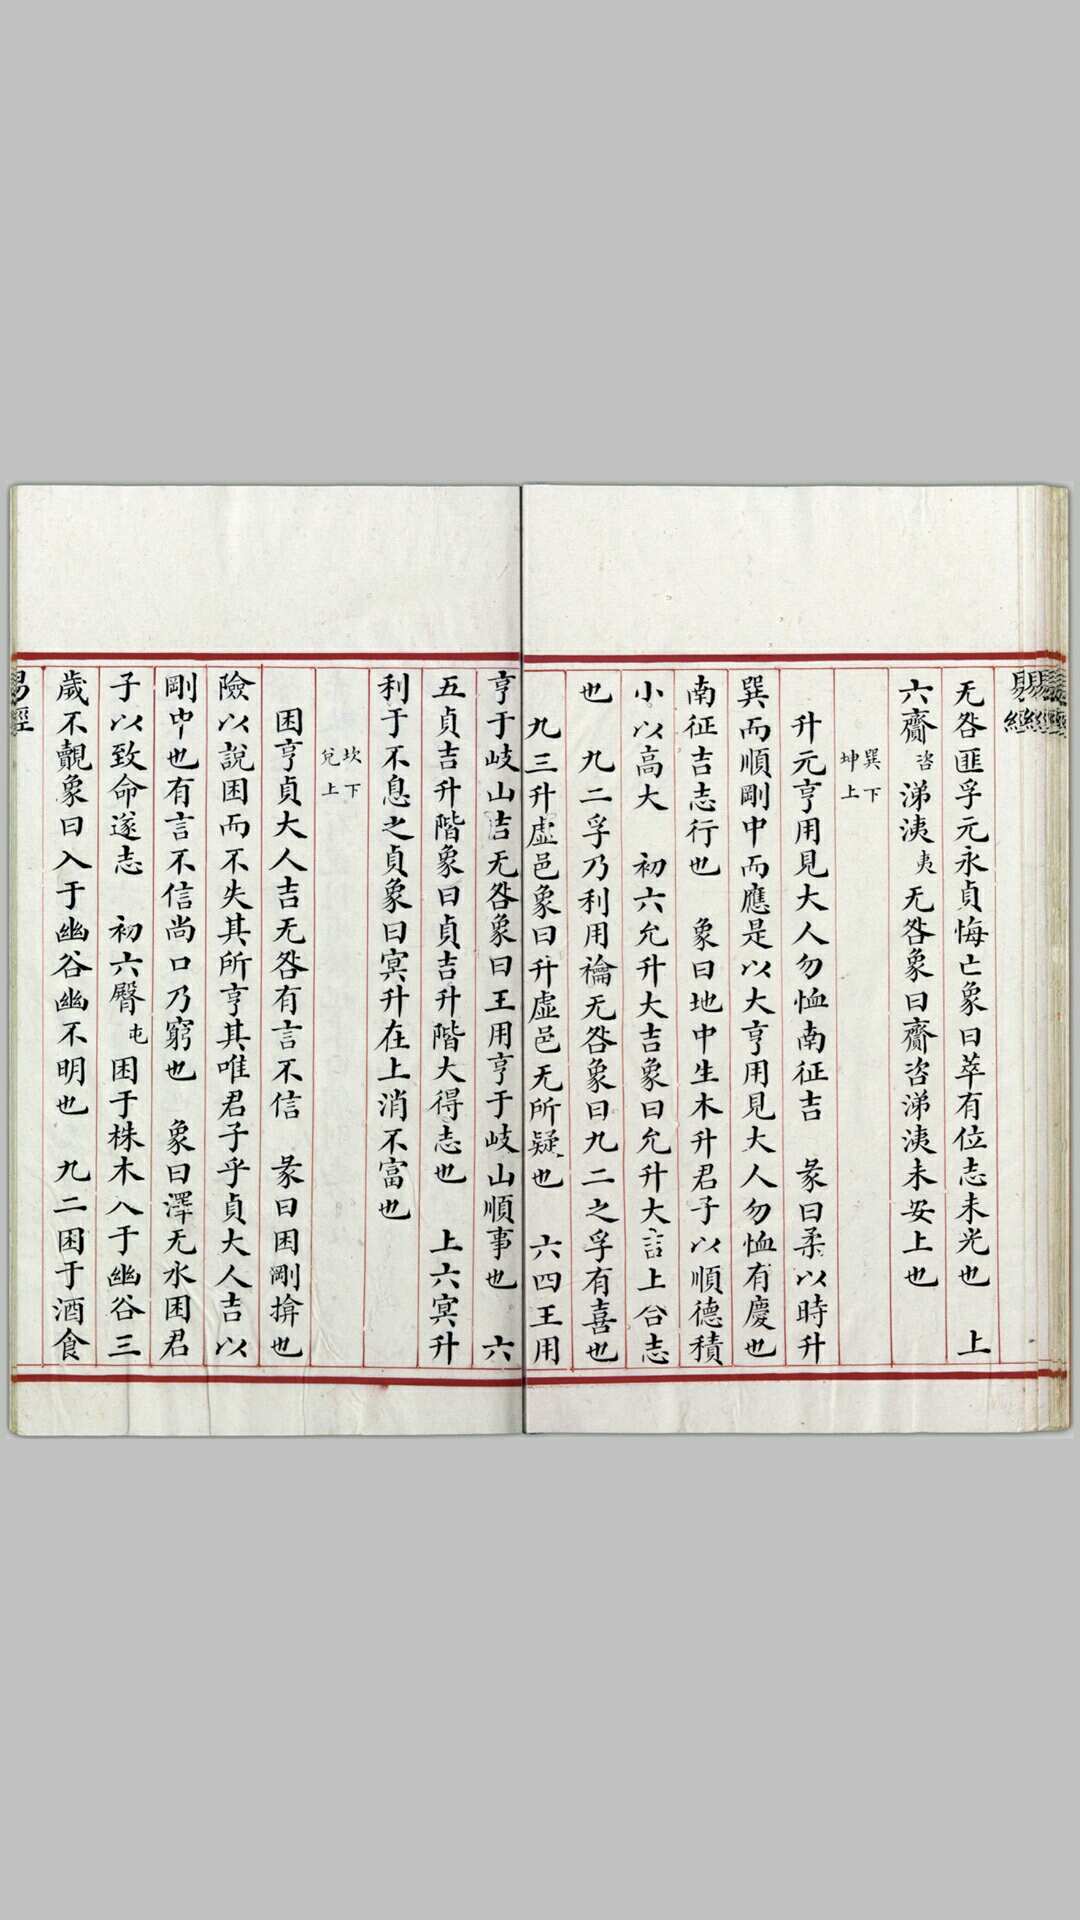 易經
无咎匪孚元永貞悔亡象曰萃有位志未光也　上
六齎咨涕洟夷无咎象曰齎咨涕洟未安上也
巽下
坤上
升元亨用見大人勿恤南征吉　彖曰柔以時升
巽而順剛中而應是以大亨用見大人勿恤有慶也
南征吉志行也　象曰地中生木升君子以順德積
小以高大　初六允升大吉象曰允升大吉上合志
也　九二孚乃利用禴无咎象曰九二之孚有喜也
九三升虛邑象曰升虛邑无所疑也　六四王用
亨于岐山吉无咎象曰王用亨于岐山順事也　六
五貞吉升階象曰貞吉升階大得志也　上六冥升
利于不息之貞象曰冥升在上消不富也
坎下
兌上
困亨貞大人吉无咎有言不信　彖曰困剛揜也
險以說困而不失其所亨其唯君子乎貞大人吉以
剛中也有言不信尚口乃窮也　象曰澤无水困君
子以致命遂志　初六臀屯困于株木入于幽谷三
歲不覿象曰入于幽谷幽不明也　九二困于酒食
易經